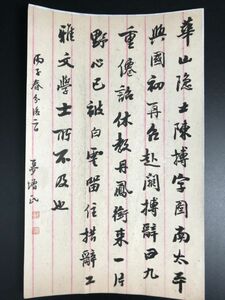 華山隐士陳搏字圖南太平
興國初再召赴闕搏辭曰九
重僊詔休教丹鳳銜來一片
野心已被白雲留住措辭工
雅文學士所不及也
丙子春分後一日